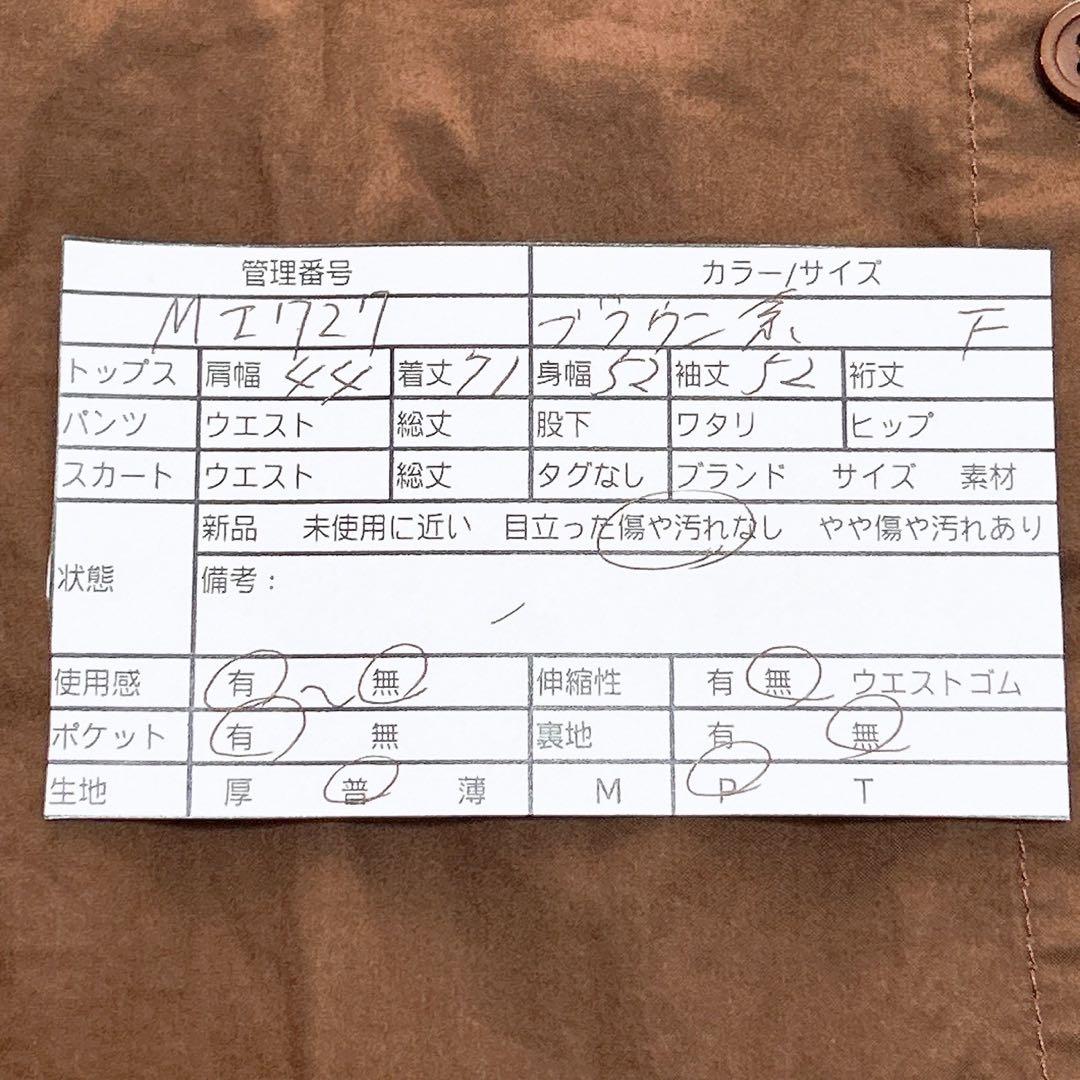 管理番号 カラー/サイズ
MI1727 ブラウン系 F
トップス 肩幅 44 着丈 71 身幅 52 袖丈 52 裄丈
パンツ ウエスト 総丈 股下 ワタリ ヒップ
スカート ウエスト 総丈 タグなし ブランド サイズ 素材
新品 未使用に近い 目立った傷や汚れなし やや傷や汚れあり
状態 備考：
使用感 有 〜 無 伸縮性 有 無 ウエストゴム
ポケット 有 無 裏地 有 無
生地 厚 普 薄 M P T